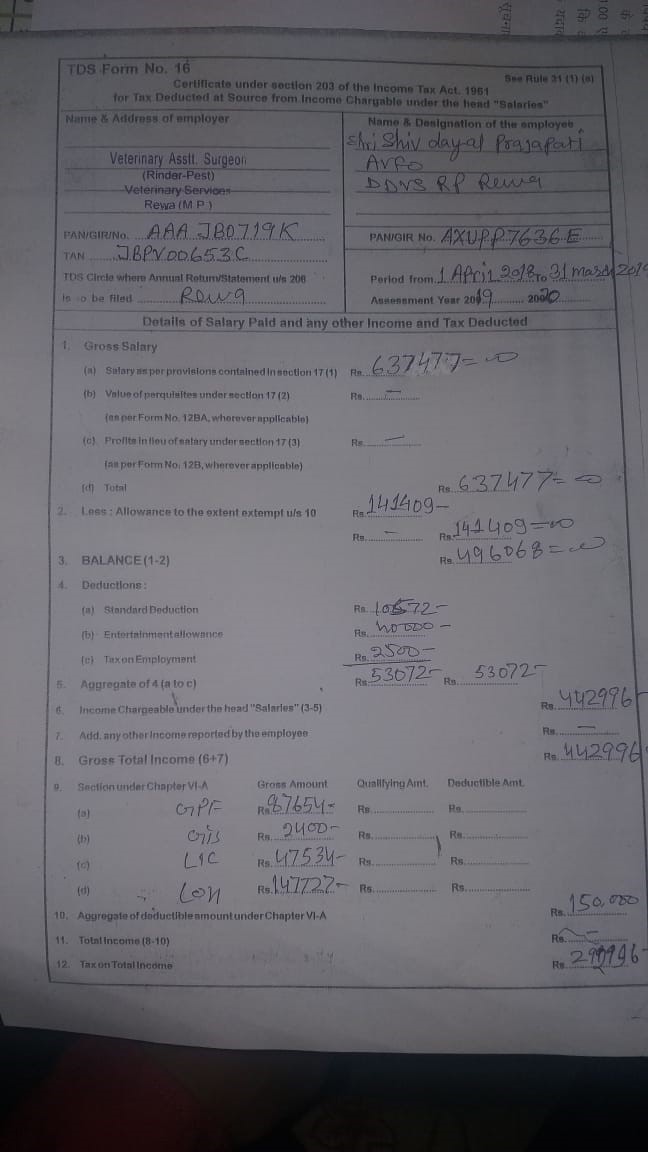 TDS Form No. 16
See Rule 31 (1) (a)
Certificate under section 203 of the Income Tax Act. 1961
for Tax Deducted at Source from Income Chargable under the head "Salaries"
Name & Address of employer
Veterinary Asstt. Surgeon
(Rinder-Pest)
Veterinary Services
Rewa (M.P.)
Name & Designation of the employee
Shri Shiv dayal Prajapati
AVFO
DDVS RP Rewa
PAN/GIR/No. AAAJB0719K
TAN JBPV00653C
TDS Circle where Annual Return/Statement u/s 206
is to be filed Rewa
PAN/GIR No. AXUPP7636E
Period from 1 April 2018 to 31 march 2019
Assessment Year 2019 2020
Details of Salary Paid and any other Income and Tax Deducted
1. Gross Salary
(a) Salary as per provisions contained in section 17 (1) Rs. 637477=00
(b) Value of perquisites under section 17 (2) Rs. —
(as per Form No. 12BA, wherever applicable)
(c) Profits in lieu of salary under section 17 (3) Rs. —
(as per Form No. 12B, wherever applicable)
(d) Total Rs. 637477=00
2. Less : Allowance to the extent extempt u/s 10 Rs. 141409-
Rs. — Rs. 141409=00
3. BALANCE (1-2) Rs. 496068=00
4. Deductions :
(a) Standard Deduction Rs. 10572-
(b) Entertainment allowance Rs. 40000-
(c) Tax on Employment Rs. 2500-
5. Aggregate of 4 (a to c) Rs. 53072- Rs. 53072-
6. Income Chargeable under the head "Salaries" (3-5) Rs. 442996-
7. Add. any other income reported by the employee Rs. —
8. Gross Total Income (6+7) Rs. 442996-
9. Section under Chapter VI-A Gross Amount Qualifying Amt. Deductible Amt.
(a) GPF Rs. 87654- Rs. Rs.
(b) GIS Rs. 2400- Rs. Rs.
(c) LIC Rs. 47534- Rs. Rs.
(d) Lon Rs. 147727- Rs. Rs.
10. Aggregate of deductible amount under Chapter VI-A Rs. 150,000
11. Total Income (8-10) Rs. —
12. Tax on Total Income Rs.